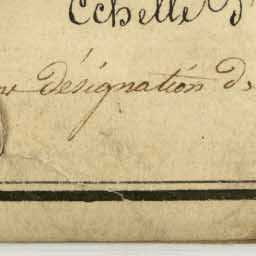 Echelle d'
désignation d